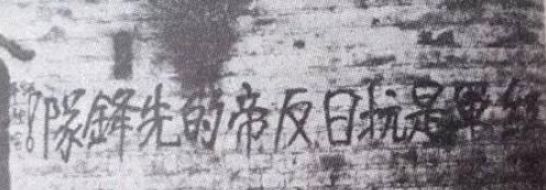 红軍是抗日反帝的先鋒隊!